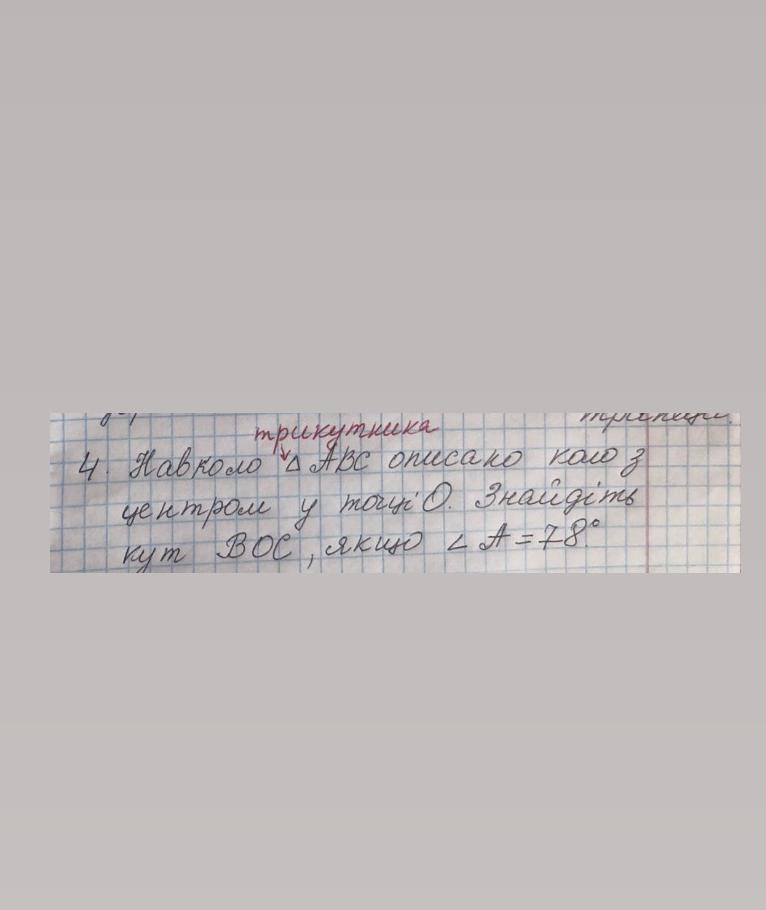 трикутника
4. Навколо △ ABC описано коло з
центром у точці O. Знайдіть
кут BOC, якщо ∠A=78°